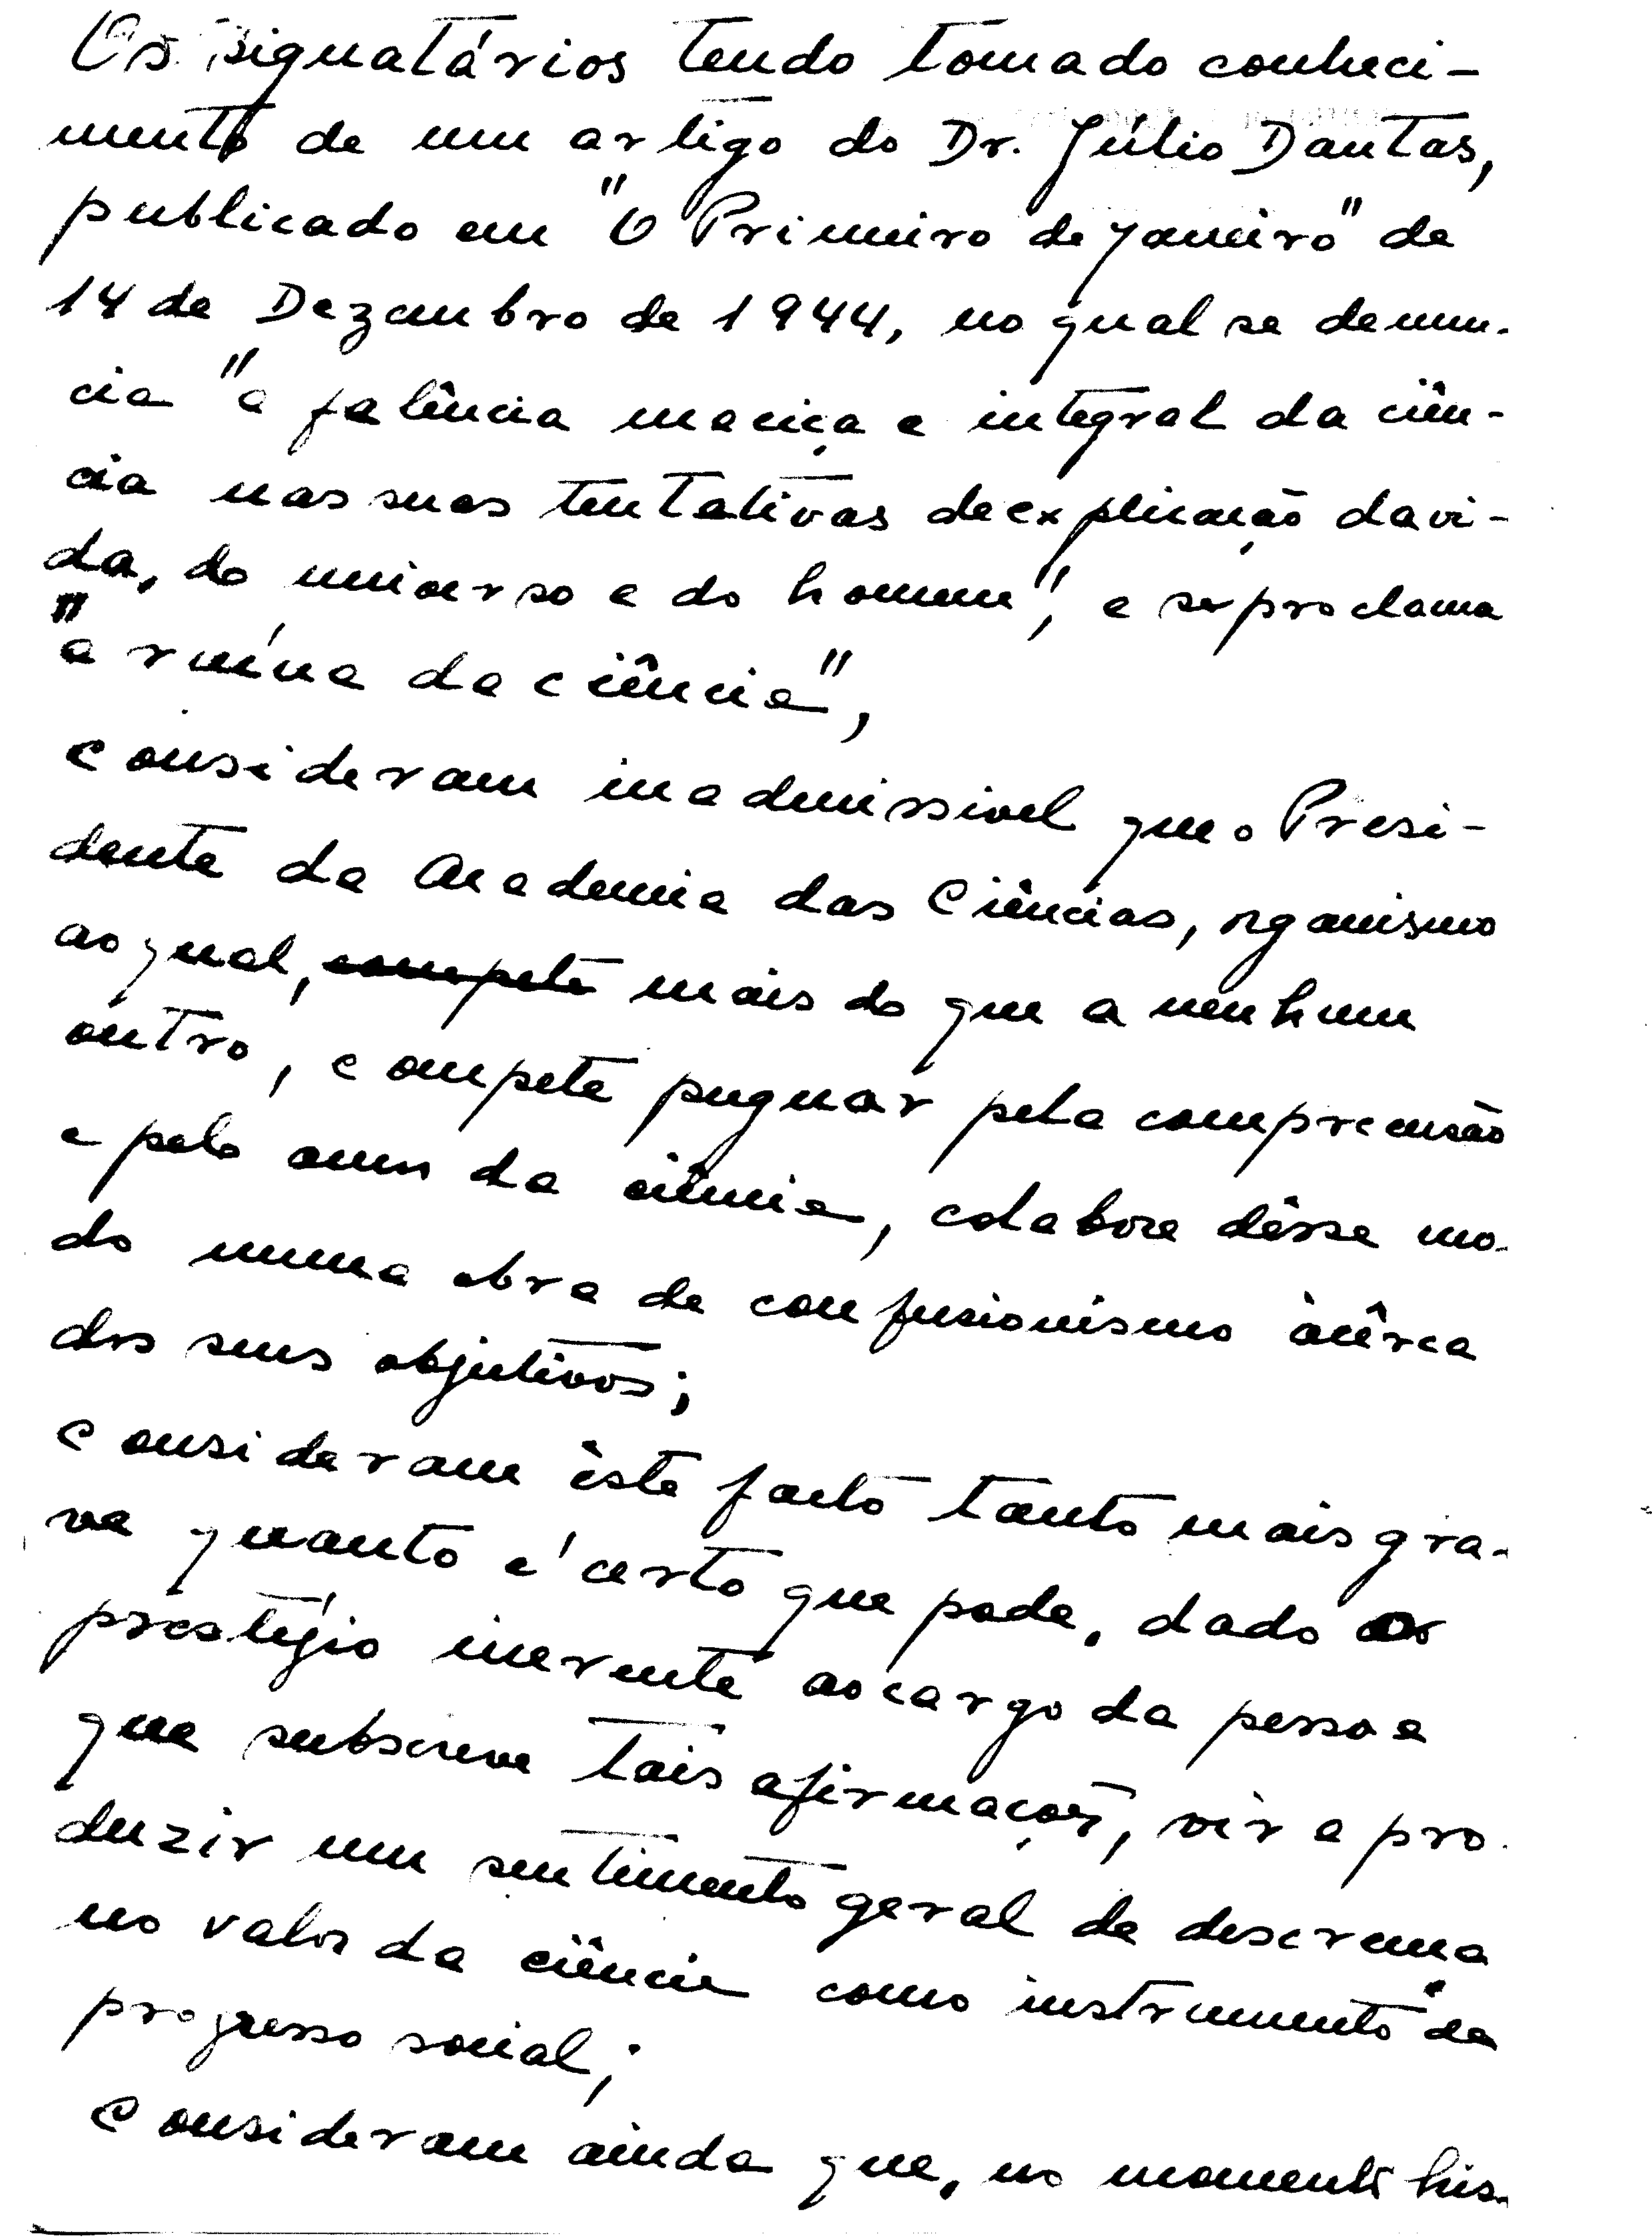 Os signatários tendo tomado conheci-
mento de um artigo do Dr. Júlio Dantas,
publicado em "O Primeiro de Janeiro" de
14 de Dezembro de 1944, no qual se denun-
cia "a falência maciça e integral da ciên-
cia nas suas tentativas de explicação da vi-
da, do universo e do homem", e se proclama
"a ruína da ciência",
consideram inadmissivel que o Presi-
dente da Academia das Ciências, organismo
ao qual, compete mais do que a nenhum
outro, compete pugnar pela compreensão
e pelo amor da ciência, colabore dêsse mo-
do numa obra de confusionismo àcêrca
dos seus objetivos;
consideram êste facto tanto mais gra-
ve quanto é certo que pode, dado o
prestígio inerente ao cargo da pessoa
que subscreve tais afirmações, vir a pro-
duzir um sentimento geral de descrença
no valor da ciência como instrumento de
progresso social;
Consideram ainda que, no momento his-